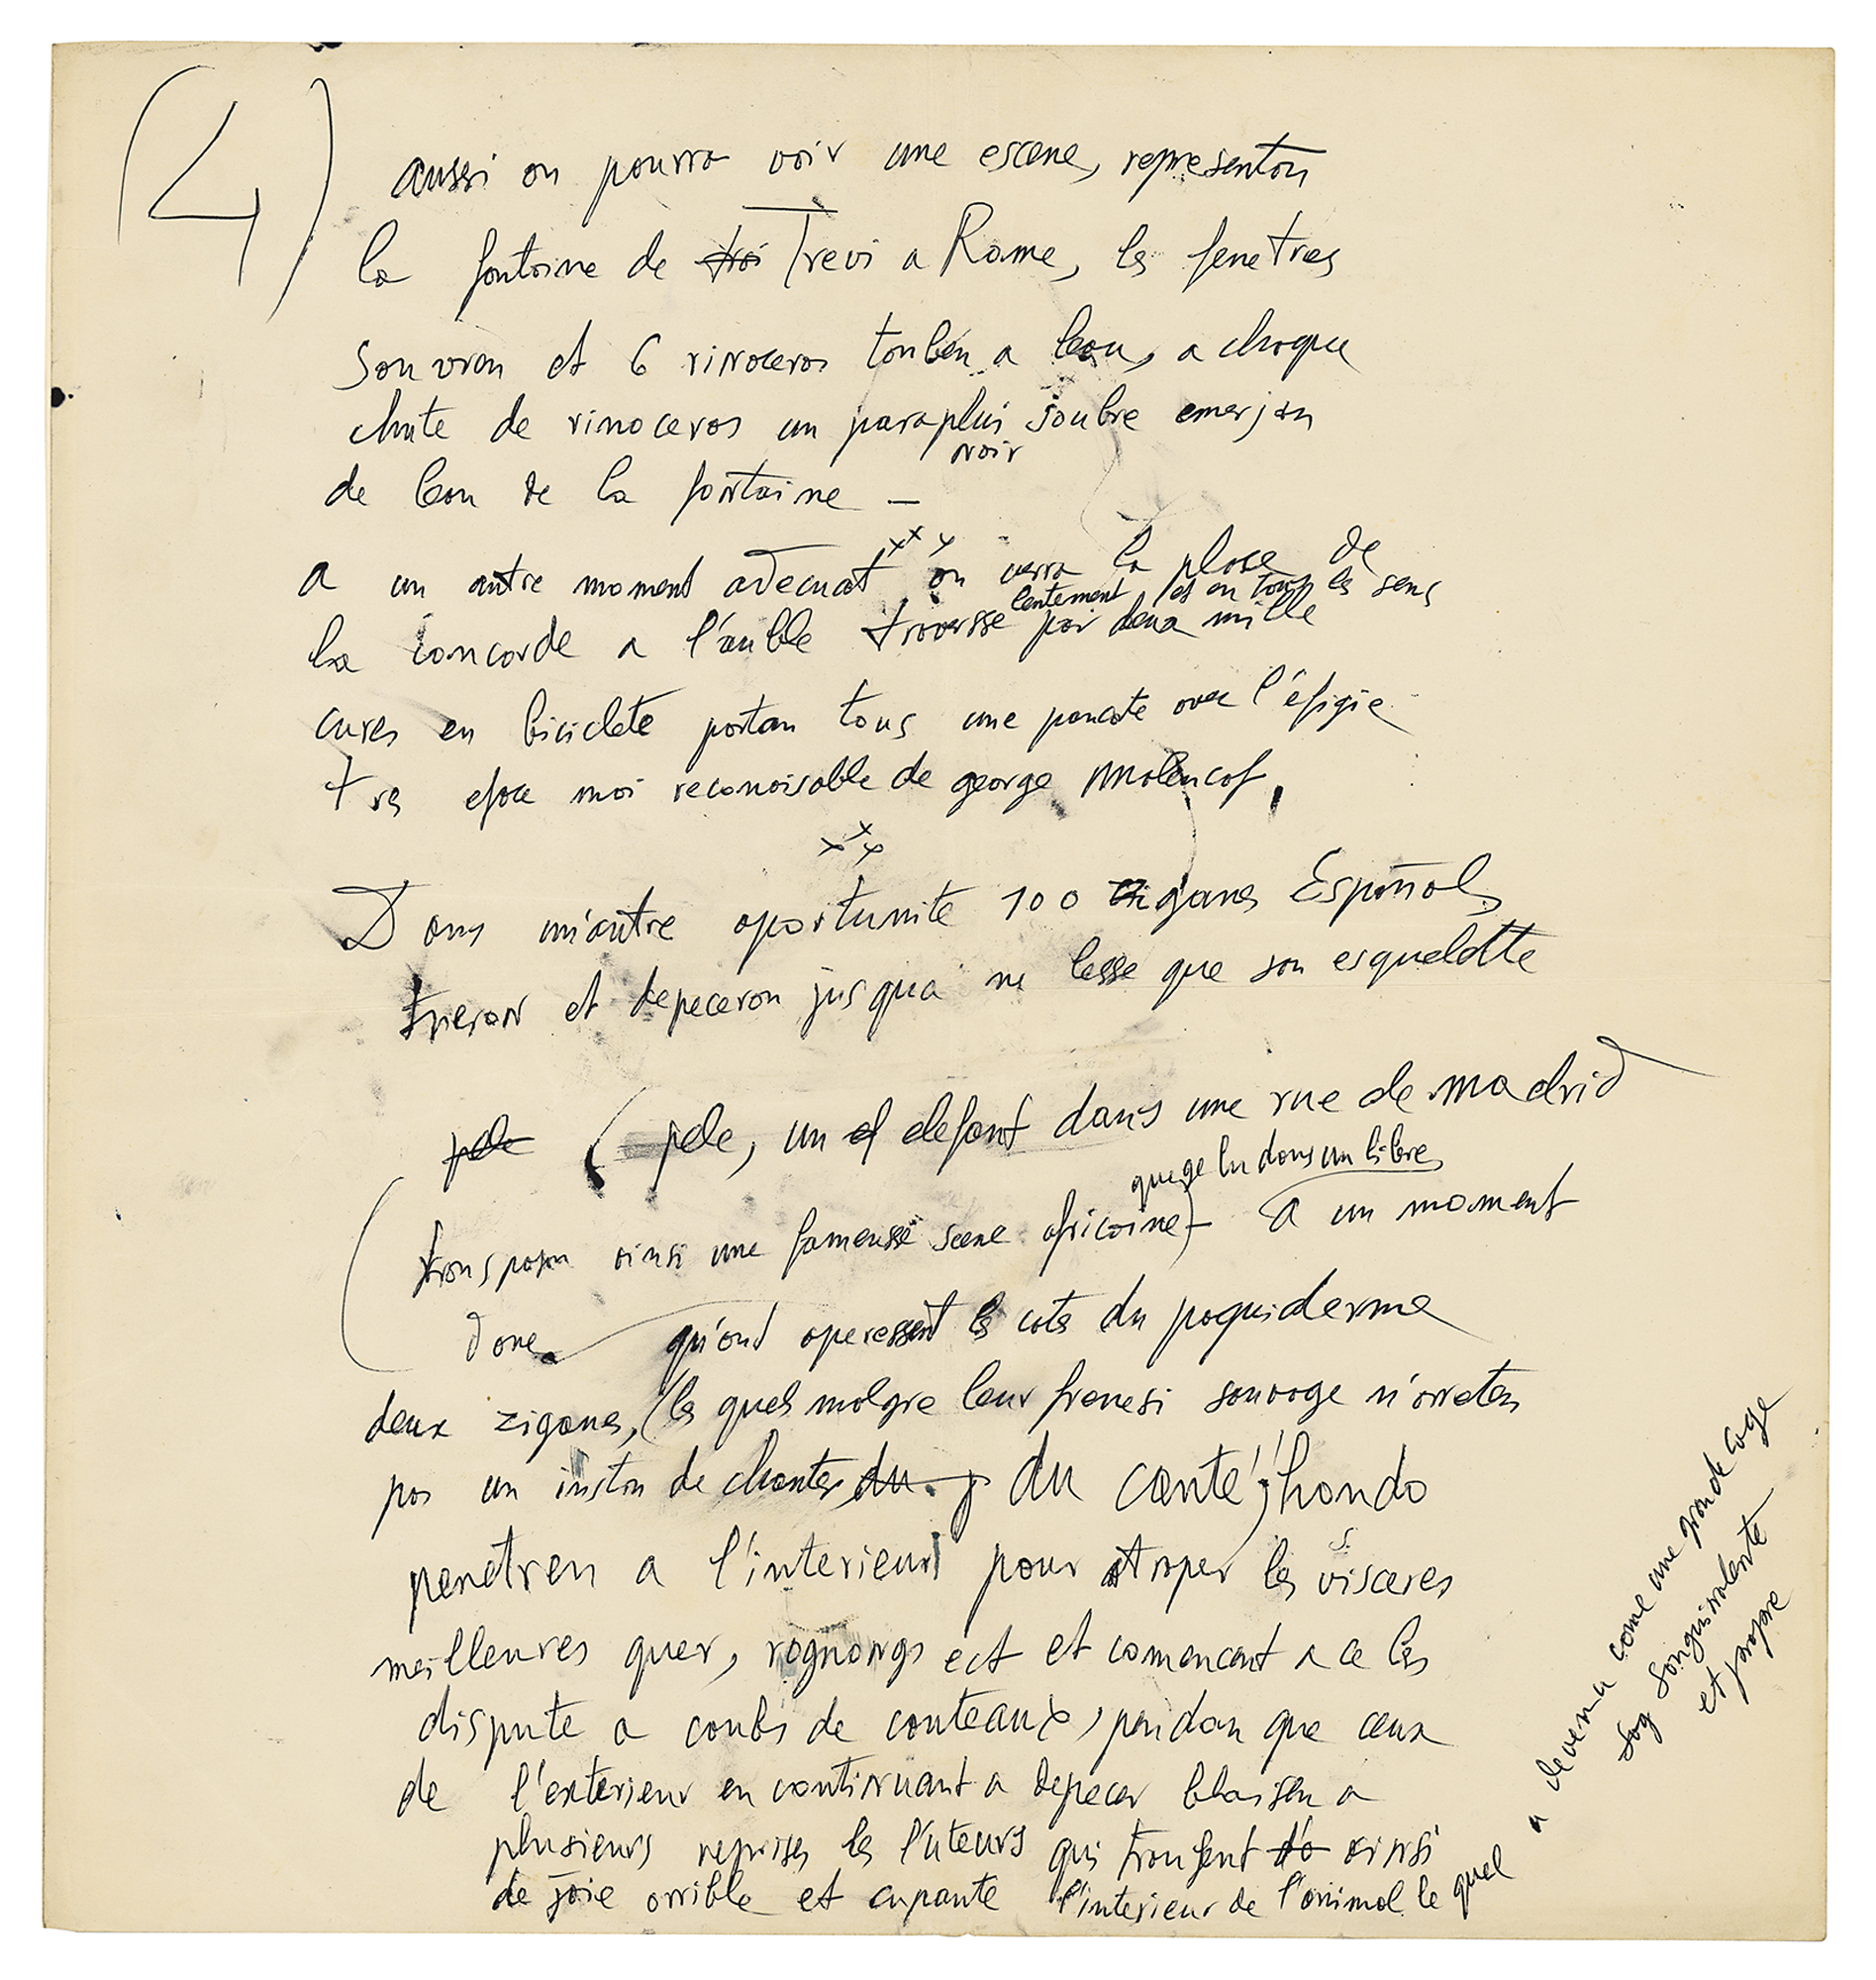 (4)
aussi on pourra voir une escene, representan
la fontaine de troi Trevi a Rome, les fenetres
souvren et 6 rinoceros tonben a leau, a chaque
chute de rinoceros un paraplui soubre emerjan
noir
de leau de la fontaine —
x x x
a un autre moment adecuat on verra la plase de
lentement et en tous les sens
la concorde a l'auble traversse par deux mille
cures en biciclete portan tous une pancate avec l'efigie
tres eface moi reconoisable de george malencof,
x x x
Dans un'autre oportunite 100 zigans Español
tueron et depeceron jusqua ne lesse que son esquelette
pele ( pele, un el elefant dans une rue de madrid
que ge lu dans un libre
transposan ainsi une fameusse scene africaine) - A un moment
done qu'ond operessent les cote du paquiderme
deux ziganes, (les quels malgre leur frenesi sauvage n'arreten
pas un instan de chanter du j du cante jhondo
penetren a l'interieur pour atraper les visceres
meilleures quer, rognongs ect et comencent a ce les
dispute a coubs de couteaux, pendan que ceux
de l'exterieur en continuant a depecer blaisen a
plusieurs reprises les luteurs qui tronfent d'o ainsi
de joie orrible et cupante l'interieur de l'animal le quel
a devenu come une grande cage
sag sanguinolente
et propre